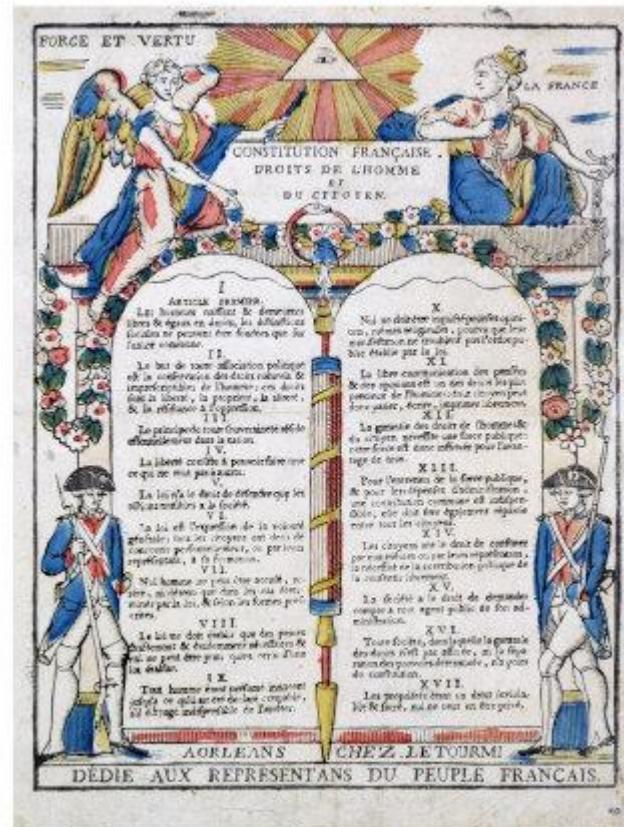 FORCE ET VERTU
LA FRANCE
CONSTITUTION FRANÇAISE.
DROITS DE L'HOMME
ET
DU CITOYEN.
I
ARTICLE PREMIER.
Les hommes naissent & demeurent
libres & égaux en droits, les distinctions
sociales ne peuvent être fondées que sur
II.
Le but de toute association politique
est la conservation des droits naturels &
imprescriptibles de l'homme; ces droits
sont la liberté, la propriété, la sûreté,
& la résistance à l'oppression.
III
Le principe de toute souveraineté réside
essentiellement dans la nation.
IV.
La liberté consiste à pouvoir faire tout
ce qui ne nuit pas à autrui.
V.
La loi n'a le droit de défendre que les
actions nuisibles à la société.
VI.
La loi est l'expression de la volonté
générale; tous les citoyens ont droit de
concourir personnellement, ou par leurs
représentans, à sa formation.
VII.
Nul homme ne peut être accusé,
VIII.
La loi ne doit établir que des peines
IX
Tout homme étant présumé innocent
X.
Nul ne doit être inquiété pour ses opini-
ons, mêmes religieuses, pourvu que leur
manifestation ne trouble pas l'ordre pu-
blic établi par la loi.
XI.
La libre communication des pensées
& des opinions est un des droits les plus
précieux de l'homme: tout citoyen peut
donc parler, écrire, imprimer librement.
XII
La garantie des droits de l'homme &
du citoyen nécessite une force publique:
cette force est donc instituée pour l'avan-
tage de tous.
XIII.
Pour l'entretien de la force publique,
& pour les dépenses d'administration,
une contribution commune est indispen-
sable; elle doit être également répartie
entre tous les citoyens.
XIV.
Les citoyens ont le droit de constater
par eux mêmes ou par leurs représentans,
la nécessité de la contribution publique de
la consentir librement.
XV.
La société a le droit de demander
compte à tout agent public de son ad-
ministration.
XVI.
Toute société, dans laquelle la garantie
des droits n'est pas assurée, ni la sépa-
ration des pouvoirs déterminée, n'a point
de constitution.
XVII
Les propriétés étant un droit inviola-
ble & sacré, nul ne peut en être privé.
A ORLEANS CHEZ LETOURMI
DÉDIÉ AUX REPRESENTANS DU PEUPLE FRANÇAIS.